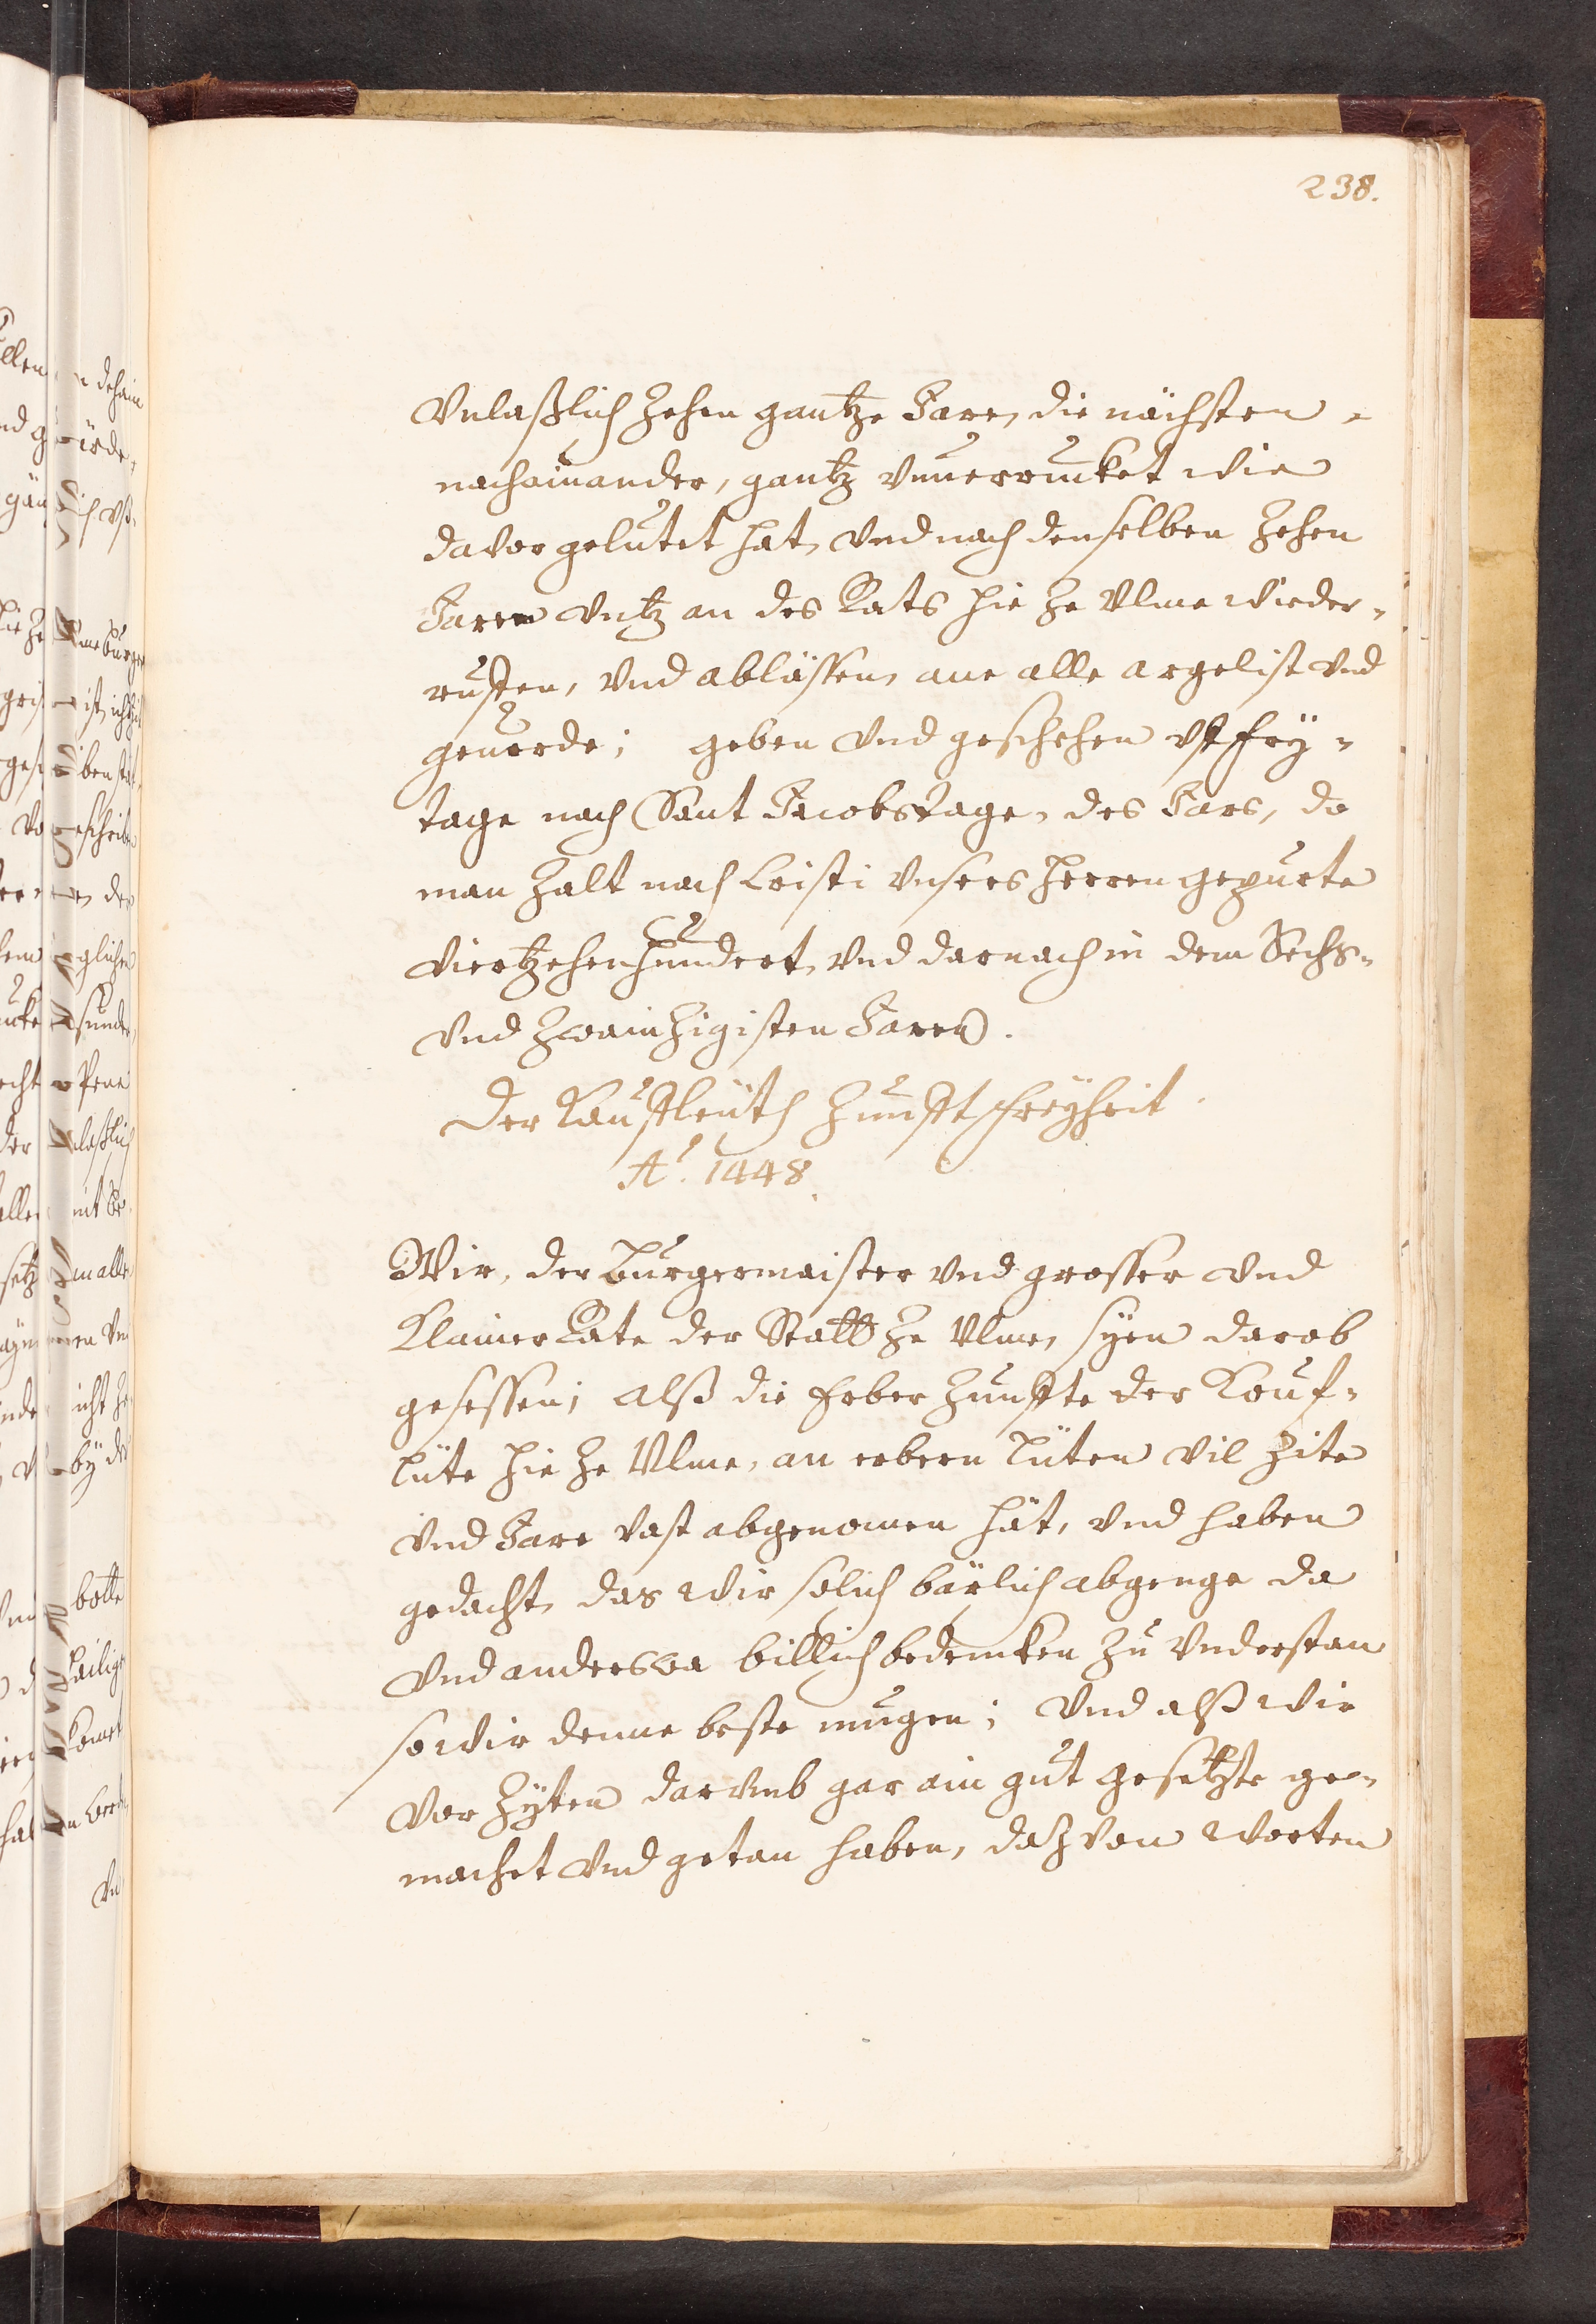 238.
Vnlaßlich zehen gantze Jare, die nächsten
nachainander, gantz vnuerrucket wie
davor gelutet hat, vnd nach denselben zehen
Jaren vntz an des Rats hie ze Vlme wieder-
ruffen, vnd ablässen, ane alle argelist vnd
geuerde; geben vnd geschehen vff fry-
tage nach Sant Jacobstage, des Jars, do
man zalt nach Cristi vnsers Herren gepurte
viertzehenhundert, vnd darnach in dem Sechs-
vnd zwainzigisten Jaren.
Der Kauffleüth Zunfft freyheit.
Aº. 1448.
Wir, der Burgermaister vnd grosser vnd
Klainer Rate der Statt ze Vlme, syen darob
gesessen; alß die Erber Zunffte der Kouf-
lüte hie ze Vlme, an erbern lüten vil zite
vnd Jare vast abgenomen hät, vnd haben
gedacht, das wir sölich bärlich abgenge da
vnd anderswa billich bedencken zu vnderstan
so wir denne beste mugen; Vnd alß wir
vor zyten darvmb gar ain gut gesetzte ge-
machet vnd getan haben, daz von worten